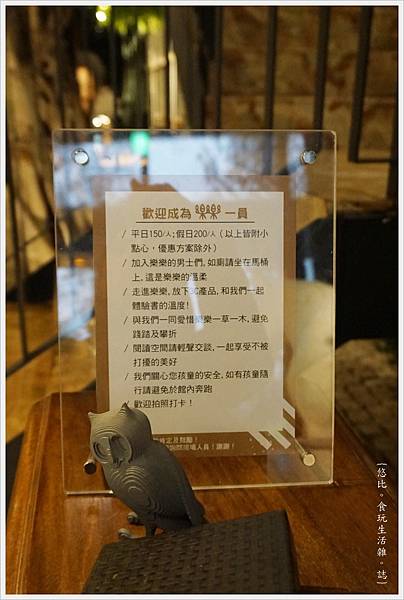 歡迎成為 樂樂 一員
/ 平日150/人;假日200/人（以上皆附小
點心，優惠方案除外）
/ 加入樂樂的男士們, 如廁請坐在馬桶
上, 這是樂樂的溫柔
/ 走進樂樂, 放下3C產品, 和我們一起
體驗書的溫度!
/ 與我們一同愛惜樂樂一草一木, 避免
踐踏及攀折
/ 閱讀空間請輕聲交談, 一起享受不被
打擾的美好
/ 我們關心您孩童的安全, 如有孩童隨
行請避免於館內奔跑
/ 歡迎拍照打卡!
肯定及鼓勵!
現場人員! 謝謝!
{悠比。食玩生活雜。誌}